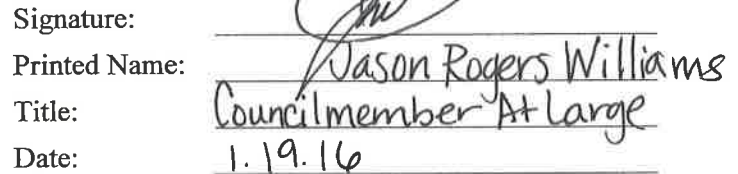 Signature:
Printed Name: Jason Rogers Williams
Title: Councilmember At Large
Date: 1.19.16